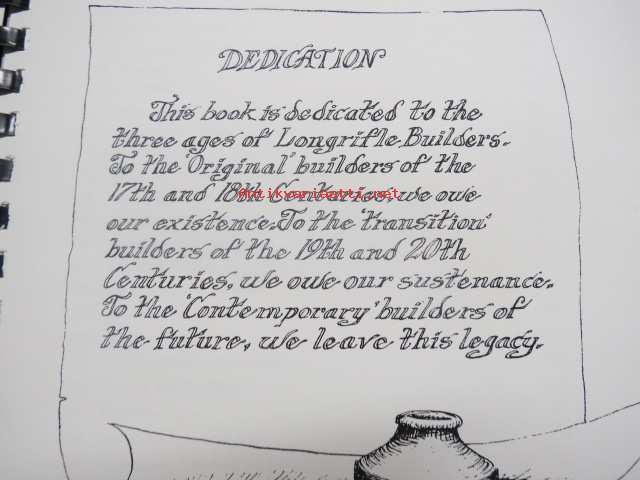 DEDICATION
This book is dedicated to the
three ages of Longrifle Builders.
To the 'Original' builders of the
17th and 18th Centuries, we owe
antikvariaatti.net
our existence. To the 'transition'
builders of the 19th and 20th
Centuries, we owe our sustenance.
To the 'Contemporary' builders of
the future, we leave this legacy.